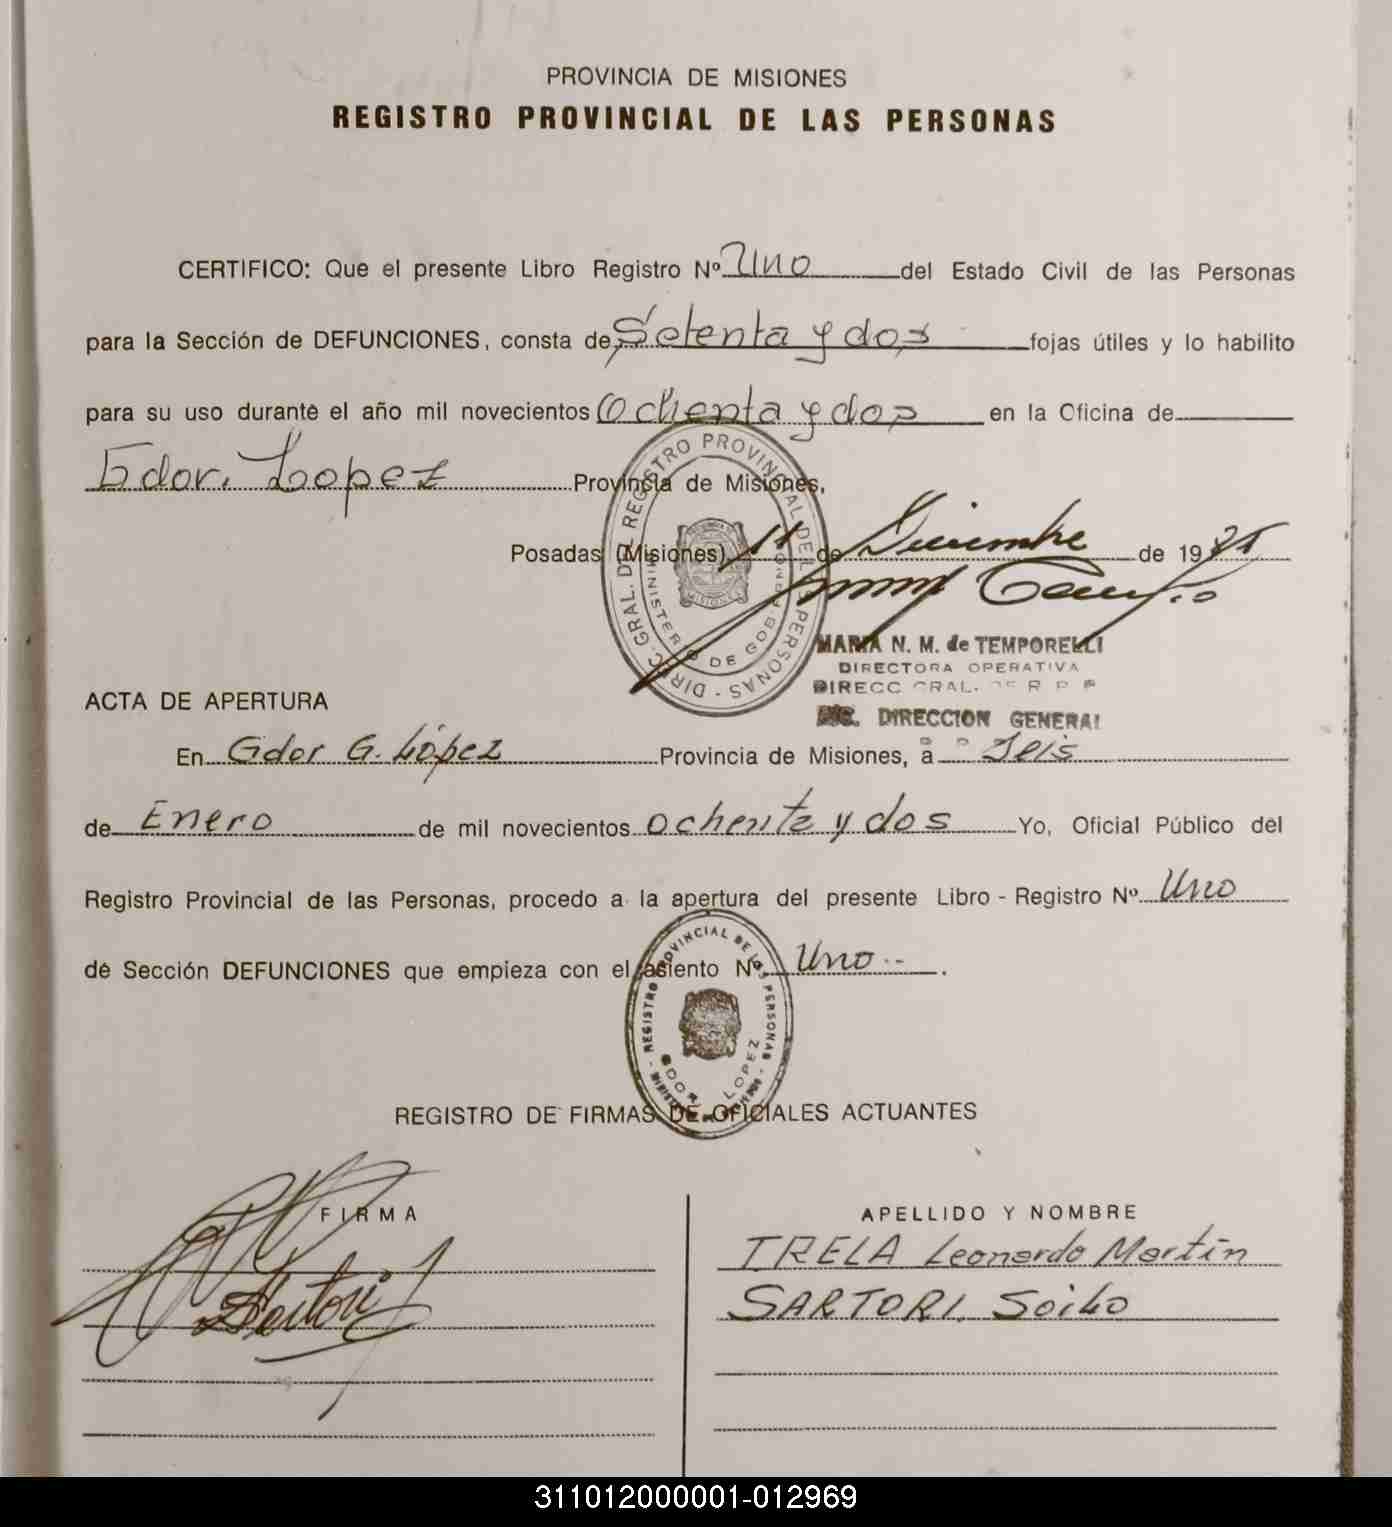 PROVINCIA DE MISIONES
REGISTRO PROVINCIAL DE LAS PERSONAS
CERTIFICO: Que el presente Libro Registro Nº Uno del Estado Civil de las Personas
para la Sección de DEFUNCIONES, consta de Setenta y dos fojas útiles y lo habilito
para su uso durante el año mil novecientos Ochenta y dos en la Oficina de
Gdor. Lopez Provincia de Misiones,
Posadas (Misiones) 11 de Diciembre de 1981
DIREC. GRAL. DEL REGISTRO PROVINCIAL DE LAS PERSONAS
MINISTERIO DE GOBIERNO
MISIONES
MARIA N. M. de TEMPORELLI
DIRECTORA OPERATIVA
DIRECC GRAL. DE R P P
DIRECCION GENERAL
ACTA DE APERTURA
En Gdor G. López Provincia de Misiones, a Seis
de Enero de mil novecientos ochenta y dos Yo, Oficial Público del
Registro Provincial de las Personas, procedo a la apertura del presente Libro - Registro Nº Uno
de Sección DEFUNCIONES que empieza con el asiento Nº Uno --.
REGISTRO PROVINCIAL DE LAS PERSONAS
GDOR. LOPEZ
REGISTRO DE FIRMAS DE OFICIALES ACTUANTES
FIRMA APELLIDO Y NOMBRE
TRELA Leonardo Martín
Sartori SARTORI, Soiko
311012000001-012969